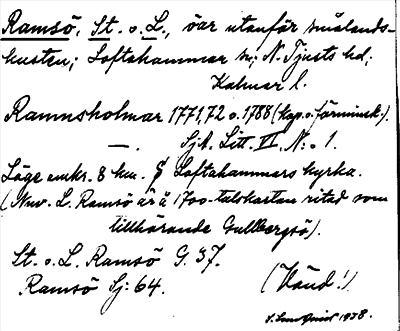 Ramsö, St. o. L., öar utanför smålands-
kusten; Loftahammar sn; N. Tjusts hd;
Kalmar l.
Ramnsholmar 177172 o. 1788 (kop. o. förminsk.).
—. Sjk. Litt. VI, N:o 1.
Läge omkr. 8 km. Loftahammars kyrka.
(Nuv. L. Ramsö är å 1700-talskartan ritad som
tillhörande Gullbergsö).
St. o. L. Ramsö G. 37.
Ramsö Sj: 64.
(Händ!)
1938.